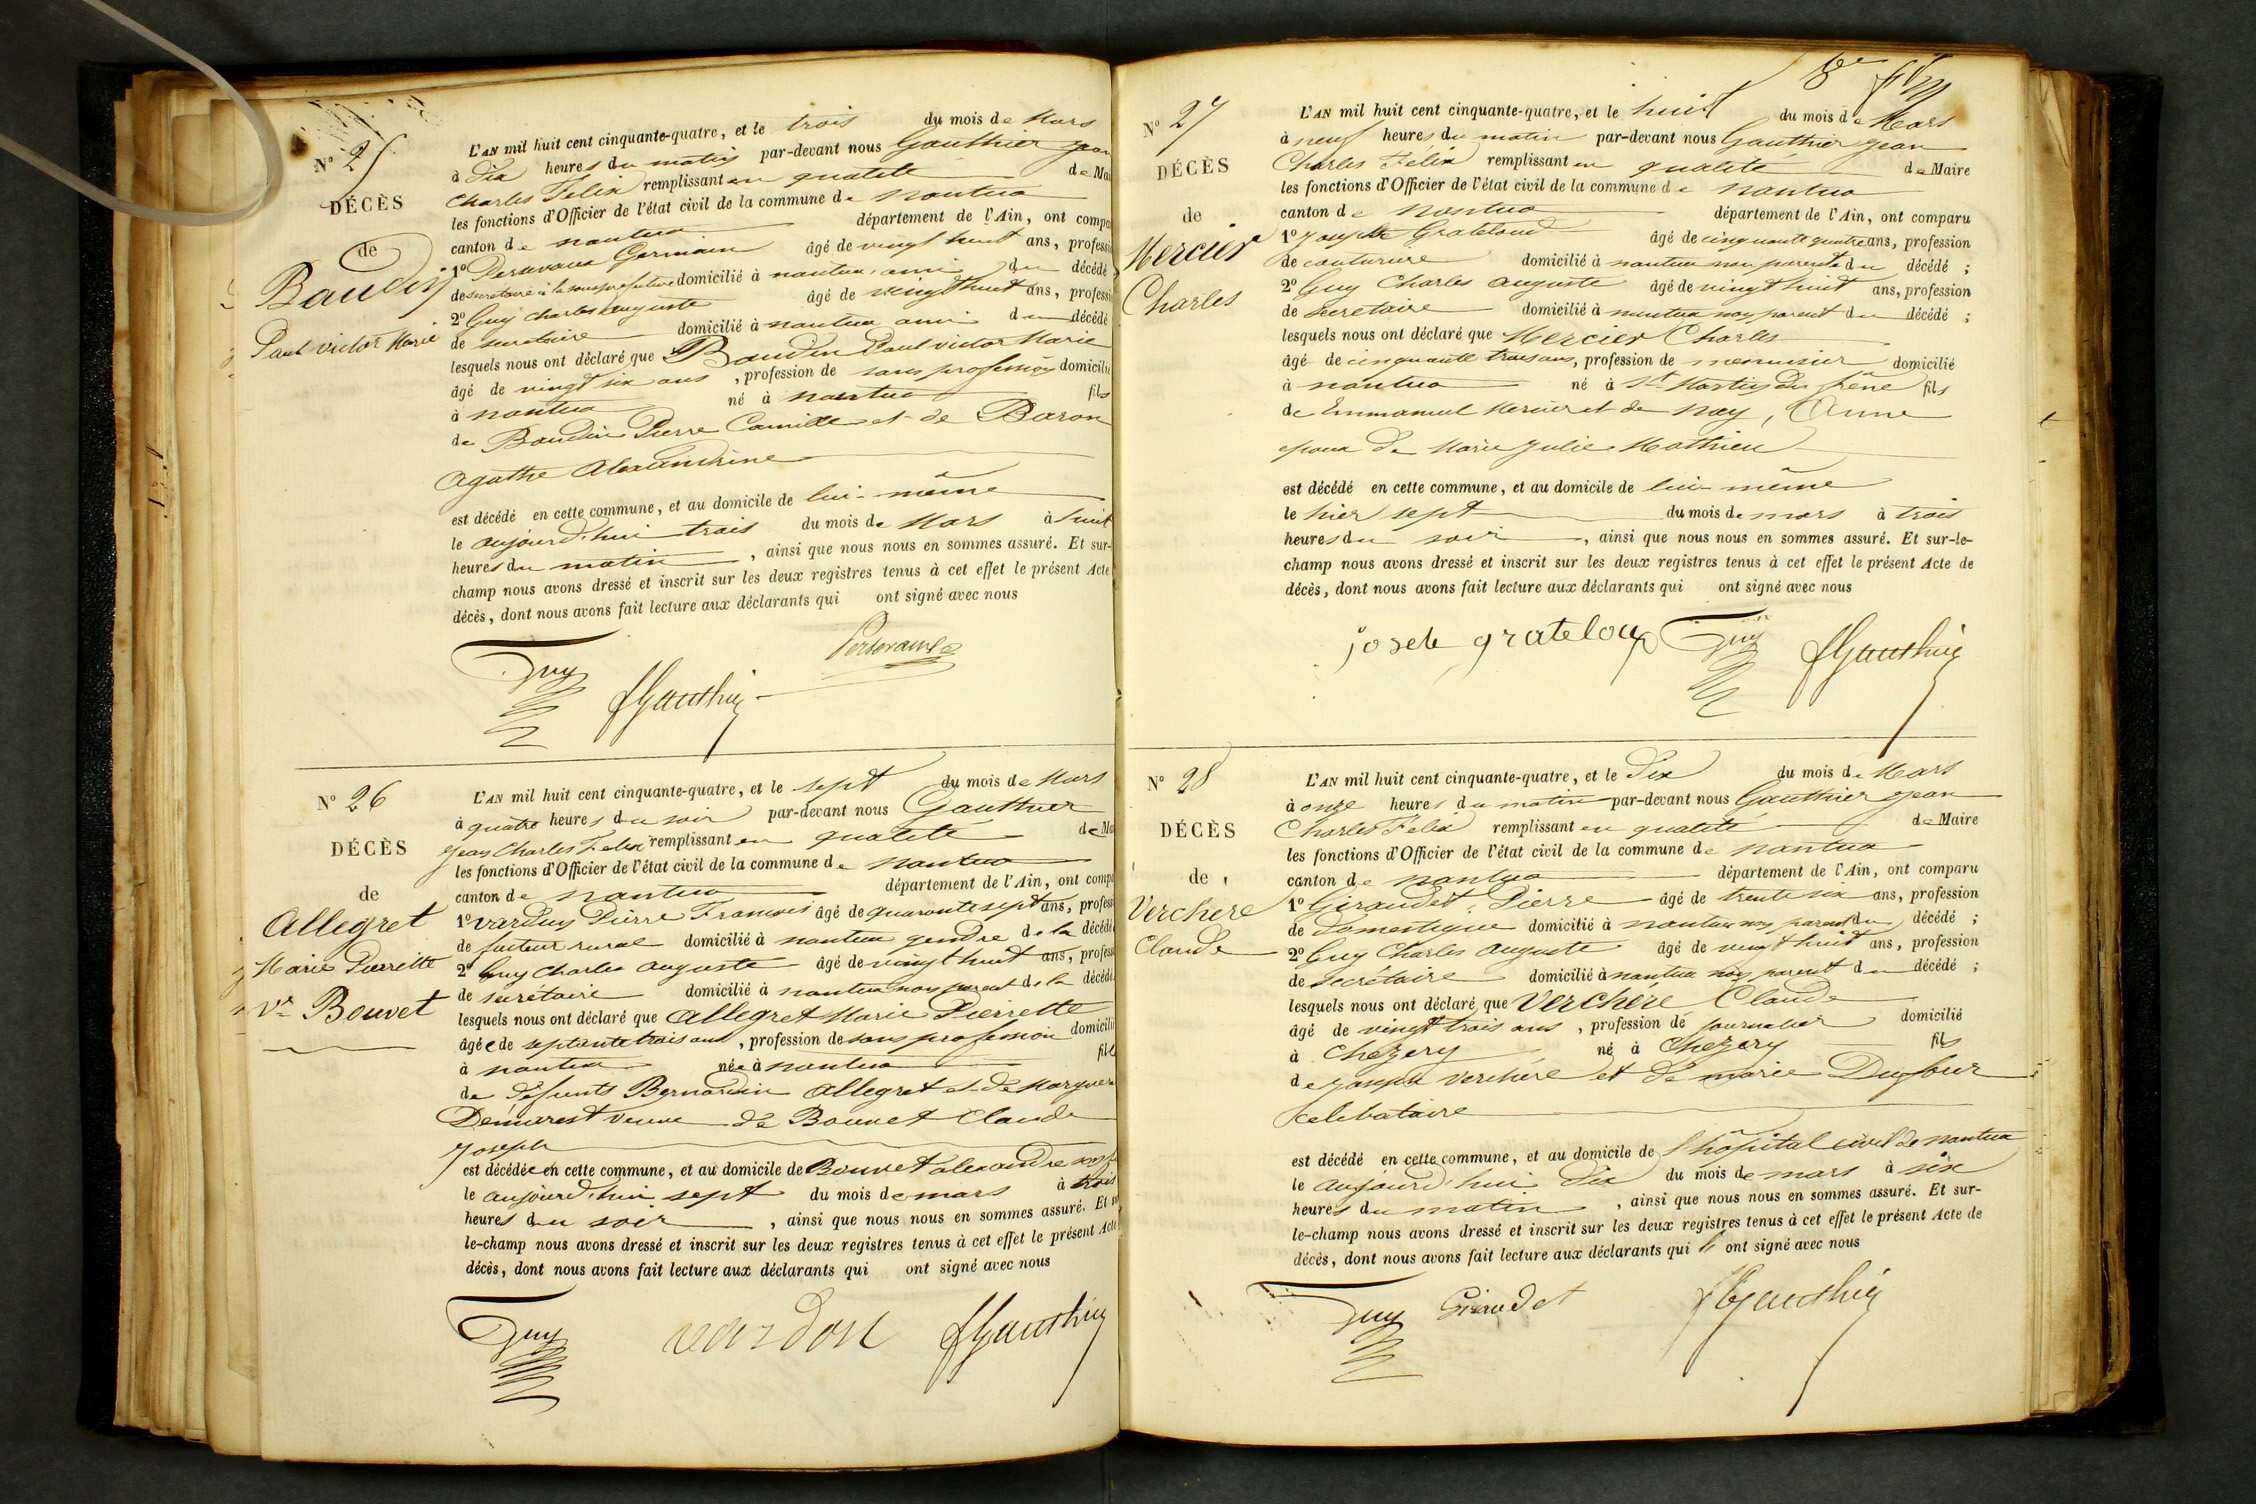 N° 25
DÉCÈS
de
Baudin
Paul victor Marie
L'AN mil huit cent cinquante-quatre, et le trois du mois de Mars
à dix heures du matin par-devant nous Gauthier Jean
Charles Félix remplissant en qualité de Mai
les fonctions d'Officier de l'état civil de la commune de nantua
canton de nantua département de l'Ain, ont compa
1° Germain âgé de vingt huit ans, professi
de secretaire à la sousprefecture domicilié à nantua, ami du décédé
2° Guy charles auguste âgé de vingt huit ans, professi
de secretaire domicilié à nantua ami du décédé
lesquels nous ont déclaré que Baudin Paul victor Marie
âgé de vingt six ans, profession de sans profession domicilié
à nantua né à nantua fils
de Baudin Pierre Camille et de Baron
agathe alexandrine
est décédé en cette commune, et au domicile de lui-même
le aujourd'hui trois du mois de Mars à huit
heures du matin, ainsi que nous nous en sommes assuré. Et sur-
champ nous avons dressé et inscrit sur les deux registres tenus à cet effet le présent Acte
décès, dont nous avons fait lecture aux déclarants qui ont signé avec nous
Guy
fGauthier
N° 26
DÉCÈS
de
Allegret
Marie Pierrette
Ve Bouvet
L'AN mil huit cent cinquante-quatre, et le sept du mois de Mars
à quatre heures du soir par-devant nous Gauthier
Jean Charles Felix remplissant en qualité de Ma
les fonctions d'Officier de l'état civil de la commune de nantua
canton de nantua département de l'Ain, ont compa
1° Pierre François âgé de quarante sept ans, profess
de facteur rural domicilié à nantua gendre de la décédé
2° Guy Charles auguste âgé de vingt huit ans, profess
de secrétaire domicilié à nantua non parent de la décédé
lesquels nous ont déclaré que Allegret Marie Pierrette
âgée de septante trois ans, profession de sans profession domicilié
à nantua née à nantua fille
de défunts Bernardin Allegret et de Marguer
Démarest veuve de Bouvet Claude
Joseph
est décédée en cette commune, et au domicile de Bouvet alexandre
le aujourd'hui sept du mois de mars à trois
heures du soir, ainsi que nous nous en sommes assuré. Et sur
le-champ nous avons dressé et inscrit sur les deux registres tenus à cet effet le présent Acte
décès, dont nous avons fait lecture aux déclarants qui ont signé avec nous
Guy
vardon
fGauthier
8e
N° 27
DÉCÈS
de
Mercier
Charles
L'AN mil huit cent cinquante-quatre, et le huit du mois de Mars
à neuf heures du matin par-devant nous Gauthier Jean
Charles Félix remplissant en qualité de Maire
les fonctions d'Officier de l'état civil de la commune de nantua
canton de nantua département de l'Ain, ont comparu
1° Josephte Grateloud âgé de cinquante quatre ans, profession
de couturiere domicilié à nantua non parente du décédé ;
2° Guy Charles auguste âgé de vingt huit ans, profession
de secretaire domicilié à nantua non parent du décédé ;
lesquels nous ont déclaré que Mercier Charles
âgé de cinquante trois ans, profession de menuisier domicilié
à nantua né à St Martin du frêne fils
de Emmanuel Mercier et de Nay, Anne
epoux de Marie Julie Mathieu
est décédé en cette commune, et au domicile de lui-même
le hier sept du mois de mars à trois
heures du soir, ainsi que nous nous en sommes assuré. Et sur-le-
champ nous avons dressé et inscrit sur les deux registres tenus à cet effet le présent Acte de
décès, dont nous avons fait lecture aux déclarants qui ont signé avec nous
Guy
fGauthier
N° 28
DÉCÈS
de
Verchere
Claude
L'AN mil huit cent cinquante-quatre, et le dix du mois de Mars
à onze heures du matin par-devant nous Gauthier Jean
Charles Félix remplissant en qualité de Maire
les fonctions d'Officier de l'état civil de la commune de nantua
canton de nantua département de l'Ain, ont comparu
1° Giraudet, Pierre âgé de trente six ans, profession
de domestique domicilié à nantua non parent du décédé ;
2° Guy Charles auguste âgé de vingt huit ans, profession
de secrétaire domicilié à nantua non parent du décédé ;
lesquels nous ont déclaré que Verchère Claude
âgé de vingt trois ans, profession de journalier domicilié
à Chezery né à Chezery fils
de Joseph Verchère et de marie Dufour
celibataire
est décédé en cette commune, et au domicile de l'hôpital civil de nantua
le aujourd'hui dix du mois de mars à six
heures du matin, ainsi que nous nous en sommes assuré. Et sur-
le-champ nous avons dressé et inscrit sur les deux registres tenus à cet effet le présent Acte de
décès, dont nous avons fait lecture aux déclarants qui ont signé avec nous
Guy
Giraudet
fGauthier